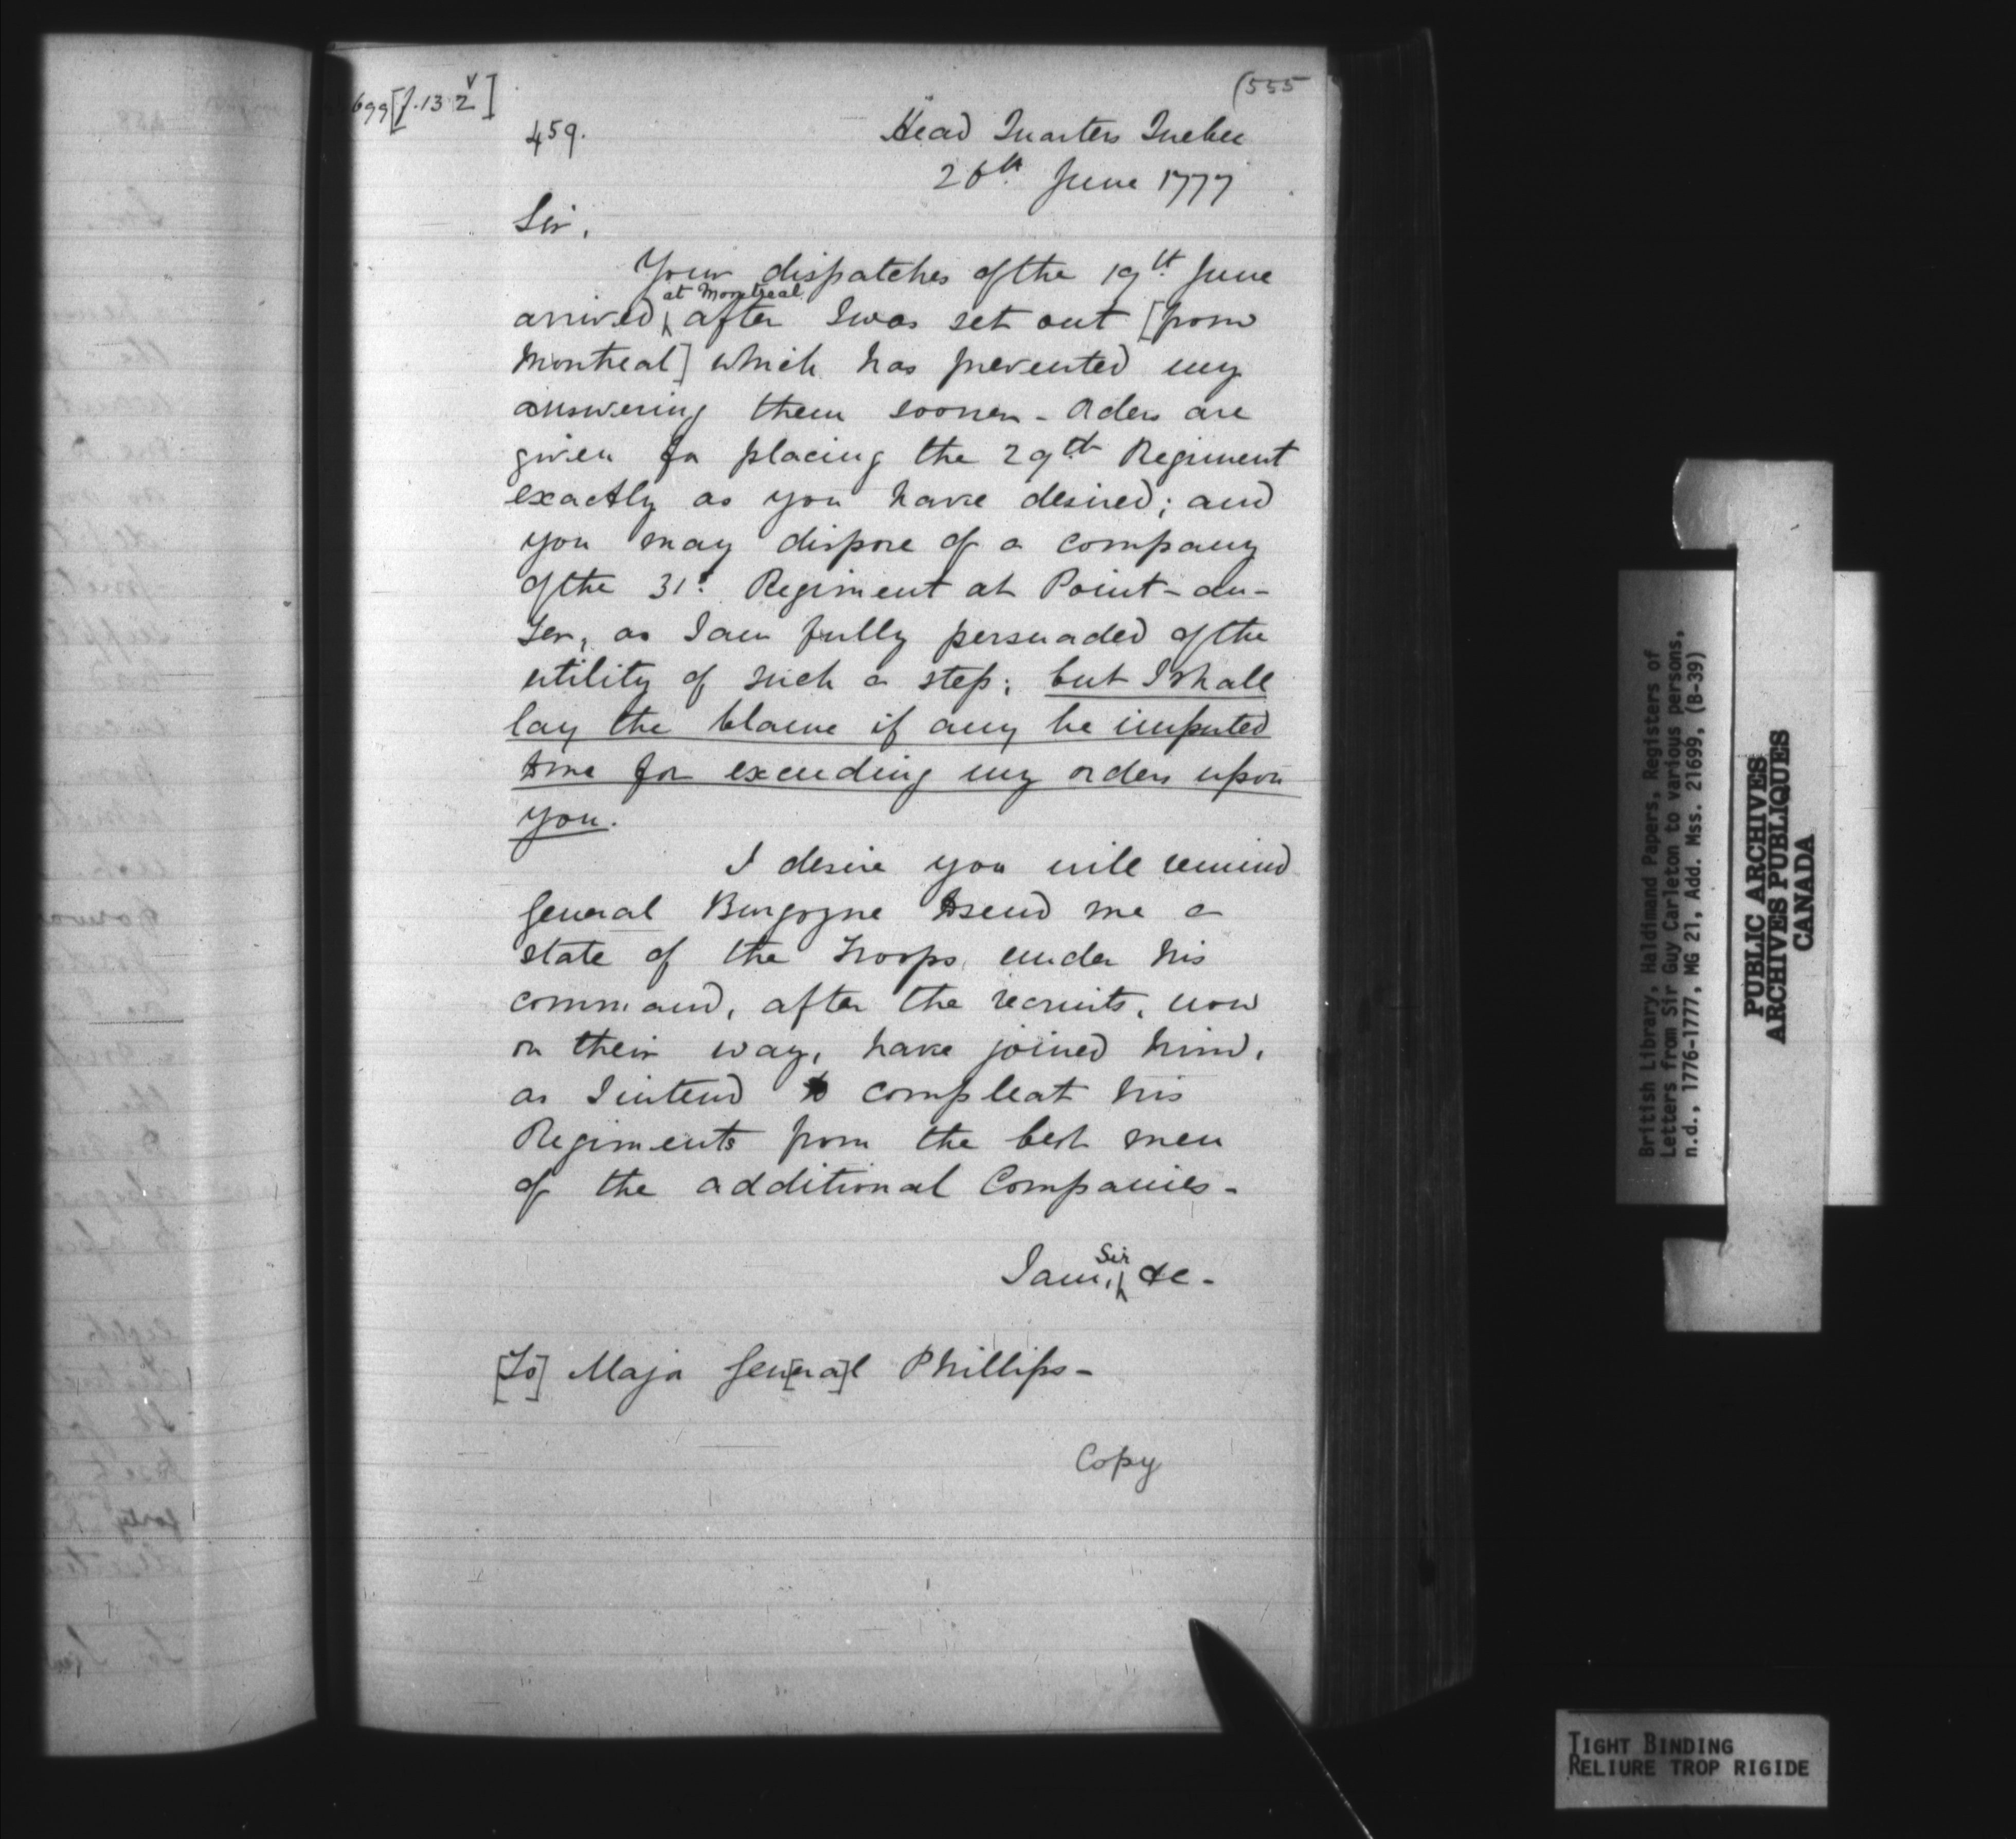 699 [f. 132v]
(555
459.
Head Quarters Quebec
26th June 1777
Sir,
Your dispatches of the 19th June
arrived at Montreal after I was set out [from
Montreal] which has prevented my
answering them sooner - Orders are
given for placing the 29th Regiment
exactly as you have desired; and
you may dispose of a company
of the 31st Regiment at Point-au-
Fer, as I am fully persuaded of the
utility of such a step; but I shall
lay the blame if any be imputed
to me for exceeding my orders upon
you.
I desire you will remind
General Burgoyne to send me a
state of the Troops under his
command, after the recruits, now
on their way, have joined him,
as I intend to compleat his
Regiments from the best men
of the additional Companies -
I am, Sir &c -
[To] Major Gen[era]l Phillips -
Copy
British Library, Haldimand Papers, Registers of
Letters from Sir Guy Carleton to various persons,
n.d., 1776-1777, MG 21, Add. Mss. 21699, (B-39)
PUBLIC ARCHIVES
ARCHIVES PUBLIQUES
CANADA
TIGHT BINDING
RELIURE TROP RIGIDE